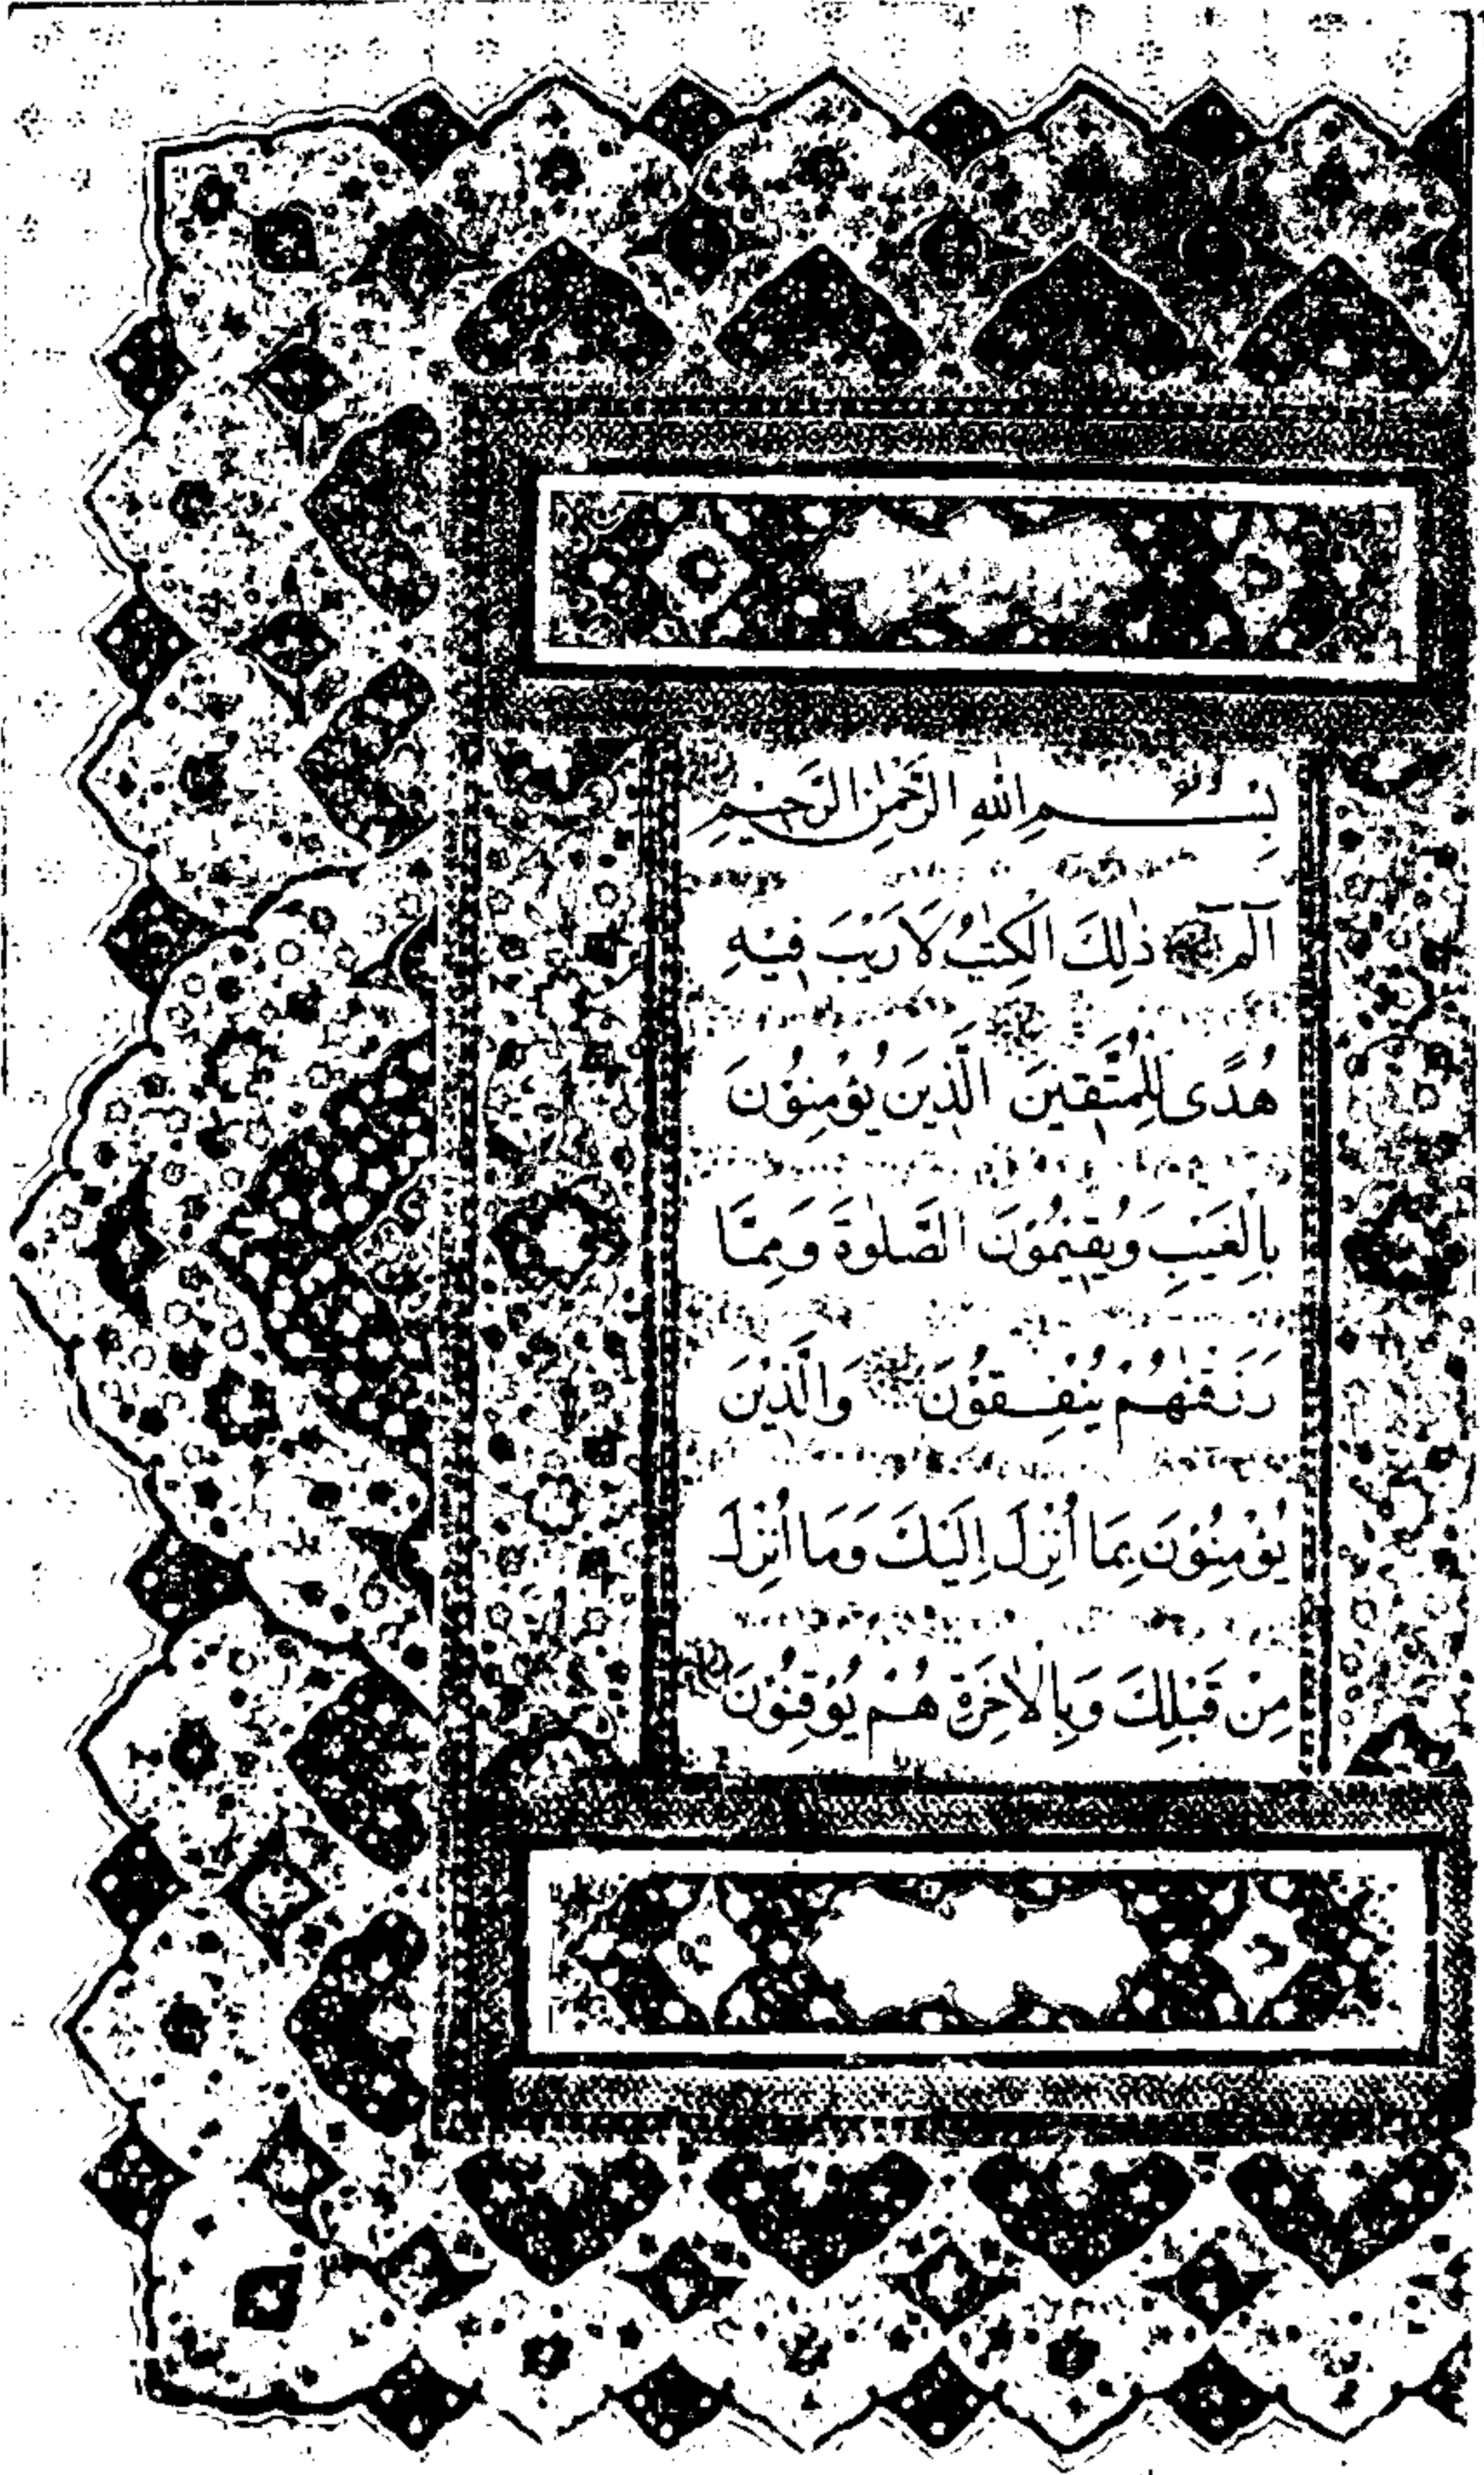 بِسْمِ اللهِ الرَّحْمٰنِ الرَّحِيْمِ
الٓمٓ ذٰلِكَ الْكِتٰبُ لَا رَيْبَ فِيْهِ
هُدًى لِلْمُتَّقِيْنَ الَّذِيْنَ يُؤْمِنُوْنَ
بِالْغَيْبِ وَيُقِيْمُوْنَ الصَّلٰوةَ وَمِمَّا
رَزَقْنٰهُمْ يُنْفِقُوْنَ وَالَّذِيْنَ
يُؤْمِنُوْنَ بِمَا اُنْزِلَ اِلَيْكَ وَمَا اُنْزِلَ
مِنْ قَبْلِكَ وَبِالْاٰخِرَةِ هُمْ يُوْقِنُوْنَ